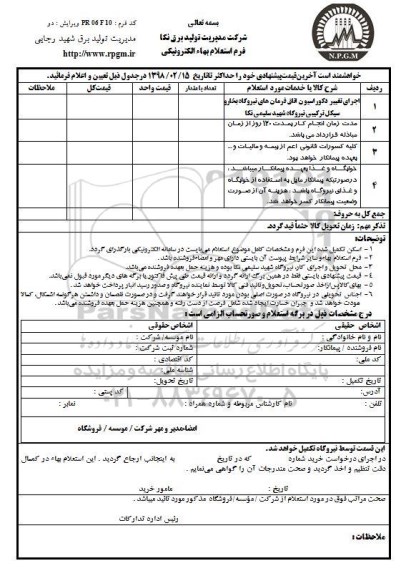 بسمه تعالی
کد فرم : PR 06 F 10 ویرایش : دو
شرکت مدیریت تولید برق نکا
مدیریت تولید برق شهید رجایی
فرم استعلام بهاء الکترونیکی
http://www.rpgm.ir
N.P.G.M
خواهشمند است آخرین قیمت پیشنهادی خود را حداکثر تا تاریخ ۱۳۹۸/۰۲/۱۵ در جدول ذیل تعیین و اعلام فرمائید.
ردیف شرح کالا یا خدمات مورد استعلام تعداد یا مقدار قیمت واحد قیمت کل ملاحظات
۱ اجرای تغییر دکوراسیون اتاق فرمان های نیروگاه بخار و
سیکل ترکیبی نیروگاه شهید سلیمی نکا
۲ مدت زمان انجام کار بمدت ۱۲۰ روز از زمان
مبادله قرارداد می باشد.
۳ کلیه کسورات قانونی اعم از بیمه و مالیات و...
بعهده پیمانکار خواهد بود.
۴ خوابگاه و غذا بعهده پیمانکار میباشد ،
درصورتیکه پیمانکار مایل به استفاده از خوابگاه
و غذای نیروگاه باشد ، هزینه آن از صورت
وضعیت پیمانکار کسر خواهد شد.
جمع کل به حروف:
تذکر مهم: زمان تحویل کالا حتماً قید گردد.
توضیحات:
۱- اسکن تکمیل شده این فرم و مشخصات کامل موضوع استعلام می بایست در سامانه الکترونیکی بارگذاری گردد.
۲- فرم استعلام بهاء و سایر شرایط پیوست آن بایستی دارای مهر و امضاء فروشنده باشد.
۳- محل تحویل و اجرای کار، نیروگاه شهید سلیمی نکا بوده و هزینه حمل بعهده فروشنده می باشد.
۴- قیمت پیشنهادی بایستی فقط در همین برگ ارائه گردد و ارائه قیمت طی پیش فاکتور یا برگه های دیگر مورد قبول نمی باشد.
۵- بهای کالا پس از اخذ صورتحساب، تحویل و تائید فنی کالا توسط نماینده نیروگاه و صدور رسید انبار پرداخت خواهد شد.
۶- اجناس تحویلی در نیروگاه در صورت اصلی بودن مورد تائید قرار خواهند گرفت و در صورت نقصان و داشتن هرگونه اشکال، کالا
عودت خواهد شد و جبران خسارت ایجاد شده از دست رفته و همچنین هزینه حمل بعهده فروشنده می باشد.
درج مشخصات ذیل در برگه استعلام و صورتحساب الزامی است :
اشخاص حقیقی اشخاص حقوقی
نام و نام خانوادگی : نام موسسه/ شرکت :
نام فروشنده / پیمانکار: شماره ثبت شرکت :
کد ملی: کد اقتصادی :
شناسه ملی:
تاریخ تکمیل : تاریخ تحویل:
آدرس: کد پستی :
تلفن : نام کارشناس مربوطه و شماره همراه : نمابر :
امضاء مدیر و مهر شرکت / موسسه / فروشگاه
این قسمت توسط نیروگاه تکمیل خواهد شد.
در اجرای درخواست خرید شماره که در تاریخ به اینجانب ارجاع گردید . این استعلام بهاء در کمال
دقت تنظیم و اخذ گردید و صحت مندرجات آن را گواهی می نمایم .
تاریخ : مامور خرید
صحت مراتب فوق در مورد استعلام از شرکت / مؤسسه/ فروشگاه مذکور مورد تائید میباشد .
رئیس اداره تدارکات
ملاحظات :
پایگاه اطلاع رسانی مناقصه و مزایده
۰۲۱-۸۸۳۴۹۶۷۰-۵